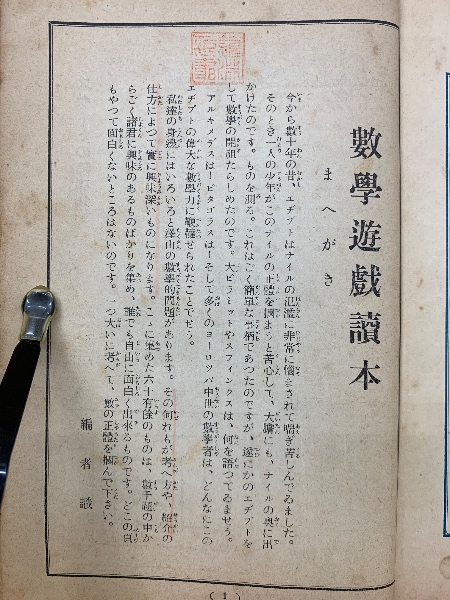 數學遊戲讀本
まへがき
今から數十年の昔、エヂプトはナイルの氾濫に非常に惱まされて喘ぎ苦しんでゐました。
そのとき一人の少年がこのナイルの正體を摑まうと苦心して、大膽にも、ナイルの奥に出
かけたのです。ものを測る。これはごく簡單な事柄であつたのですが、遂にかのエヂプトを
して數學の開祖たらしめたのです。大ピラミットやスフィンクスは、何を語つてゐませう。
アルキメデスは！ピタゴラスは！そして多くのヨーロッパ中世の數學者は、どんなにこの
エヂプトの偉大な數學力に鞭韃せられたことでせう。
私達の身邊にはいろいろと澤山の數學的問題があります。その何れもが考へ方や、紹介の
仕方によつて實に興味深いものになります。こゝに集めた六十有餘のものは、數千題の中か
らごく諸君に興味のあるものばかりを集め、誰でも自由に面白く出來るものです。どこの頁
もやつて面白くないところはないのです。一つ大いに考へて、數の正體を摑んで下さい。
編者識
(1)